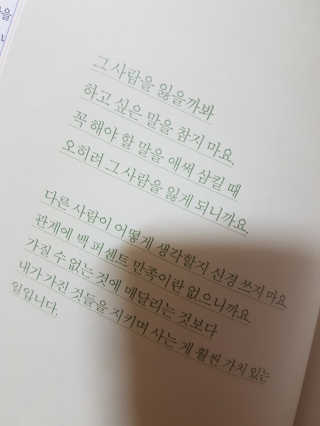 그 사람을 잃을까봐
하고 싶은 말을 참지 마요.
꼭 해야 할 말을 애써 삼킬 때
오히려 그 사람을 잃게 되니까요.
다른 사람이 어떻게 생각할지 신경 쓰지 마요
관계에 백 퍼센트 만족이란 없으니까요
가질 수 없는 것에 매달리는 것보다
내가 가진 것들을 지키며 사는 게 훨씬 가치 있는
일입니다.